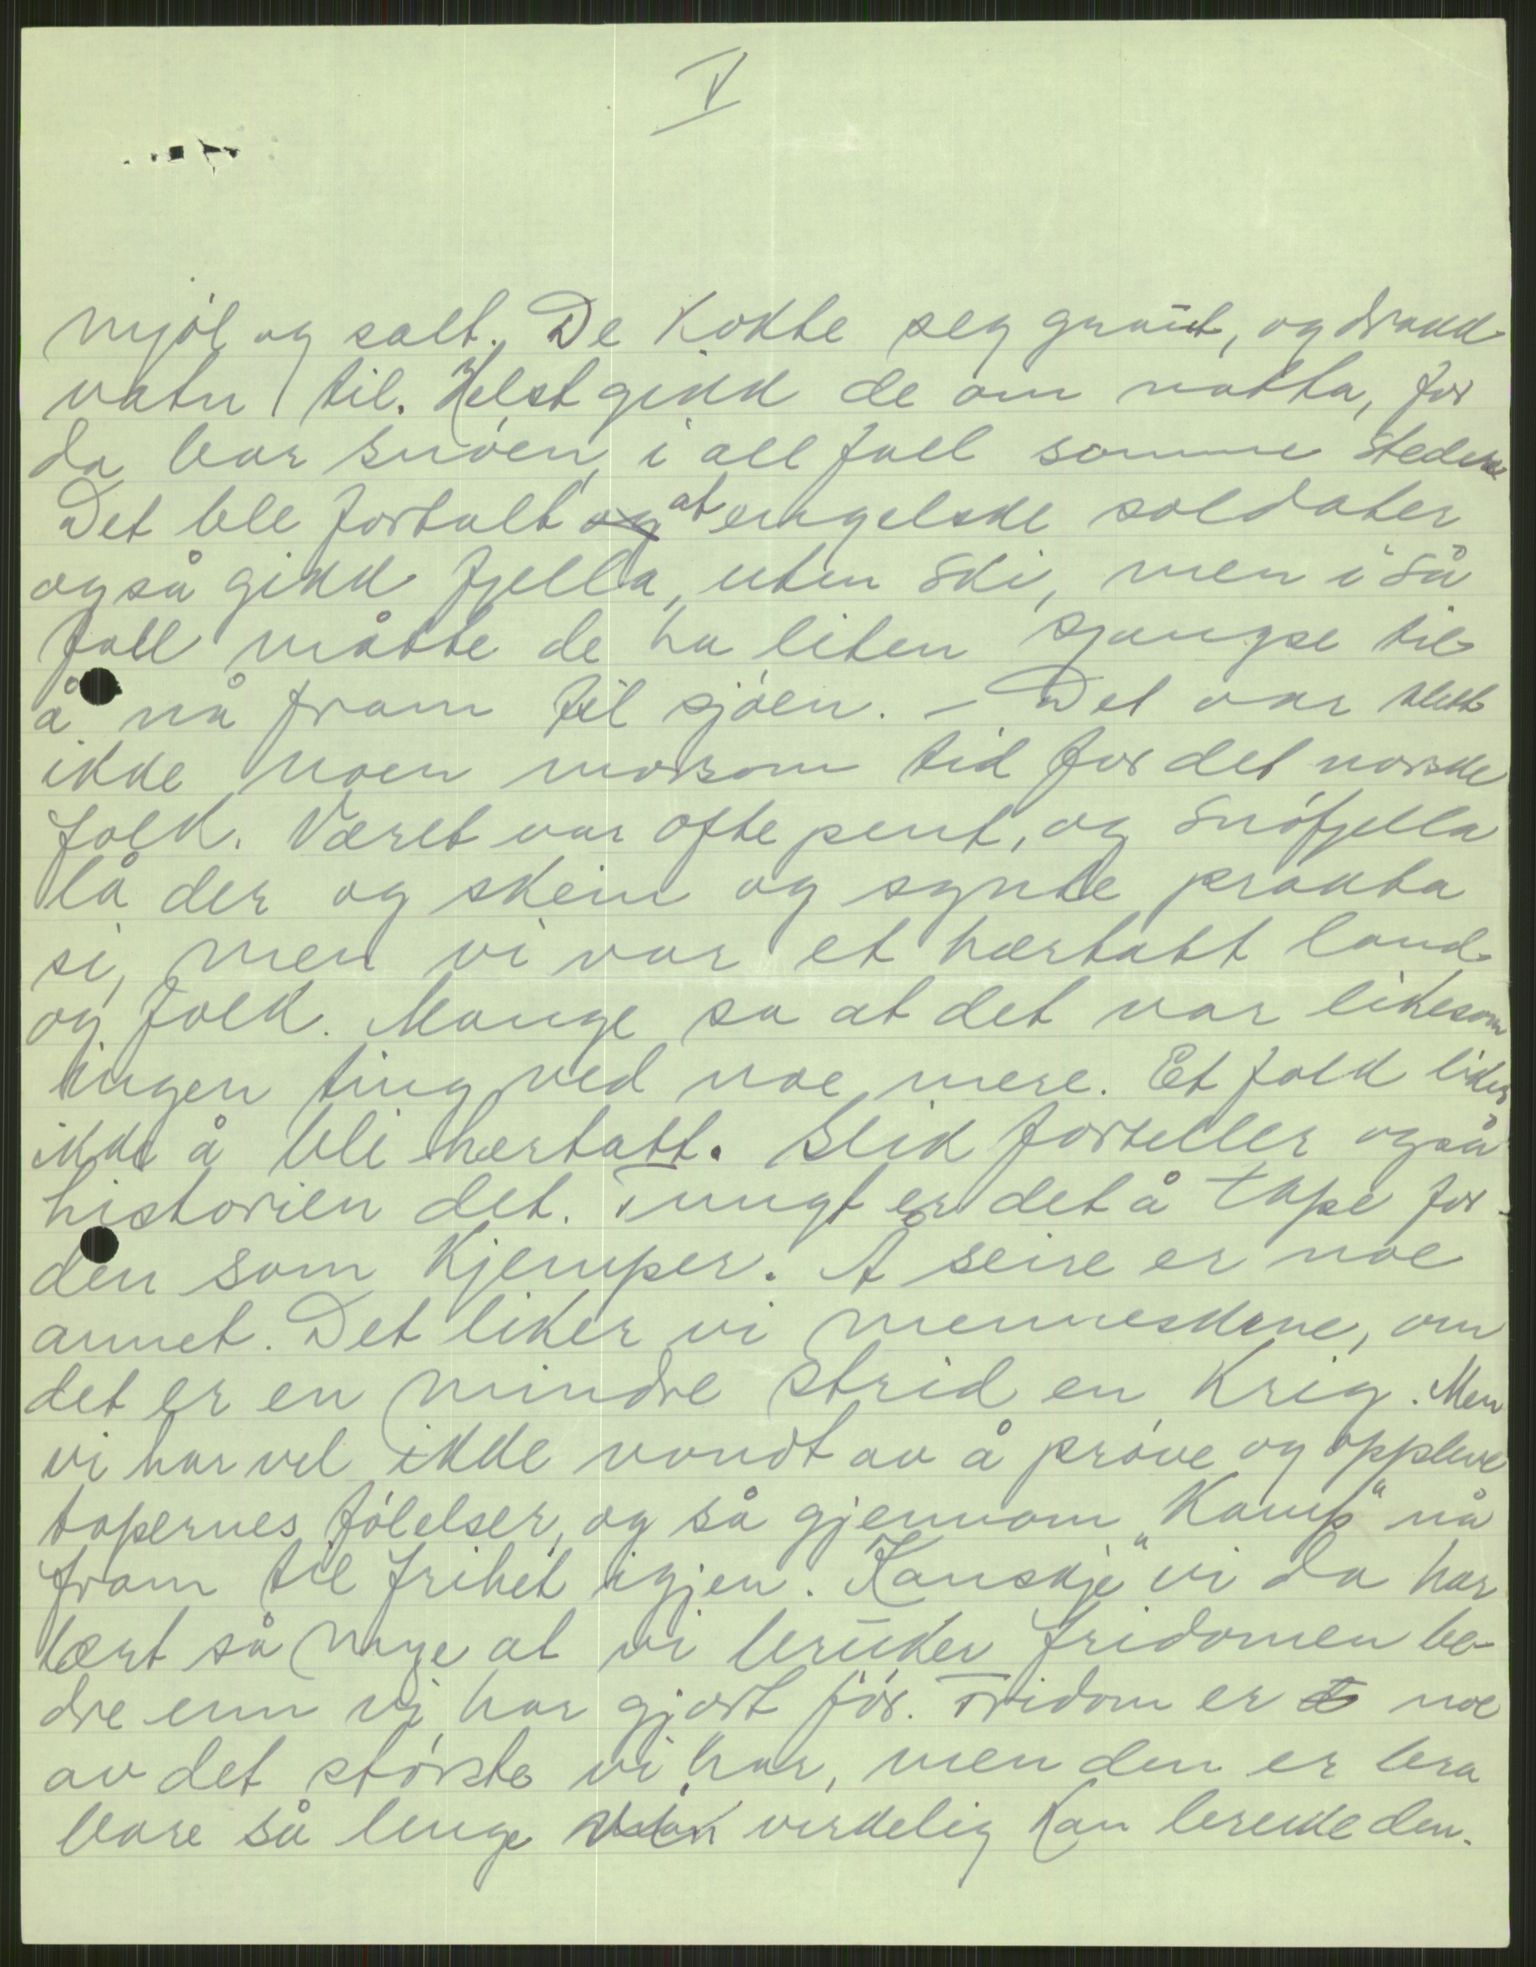 V
mjöl og salt. De kokte seg graut, og drakk
vatn til. Helst gikk de om natta, for
da bar snöen, i all fall somme steder.
Det ble fortalt at engelske soldater
også gikk fjella, uten ski, men i så
fall måtte de ha liten sjangse til
å nå fram til sjöen. – Det var slett
ikke noen morsom tid for det norske
folk. Været var ofte pent, og snöfjella
lå der og skein og synte prakta
si, men vi var et hærtatt land
og folk. Mange sa at det var likesom
ingen ting ved noe mere. Et folk liker
ikke å bli hærtatt. Slik forteller også
historien det. Tungt er det å tape for
den som kjemper. Å seire er noe
annet. Det liker vi menneskene, om
det er en mindre strid en krig. Men
vi har vel ikke vondt av å pröve og oppleve
tapernes fölelser, og så gjennom „Kamp“ nå
fram til frihet igjen. Kanskje vi da har
lært så mye at vi bruker fridomen be-
dre enn vi har gjort för. Fridom er noe
av det störste vi har, men den er bra
bare så lenge virkelig kan bruke den.